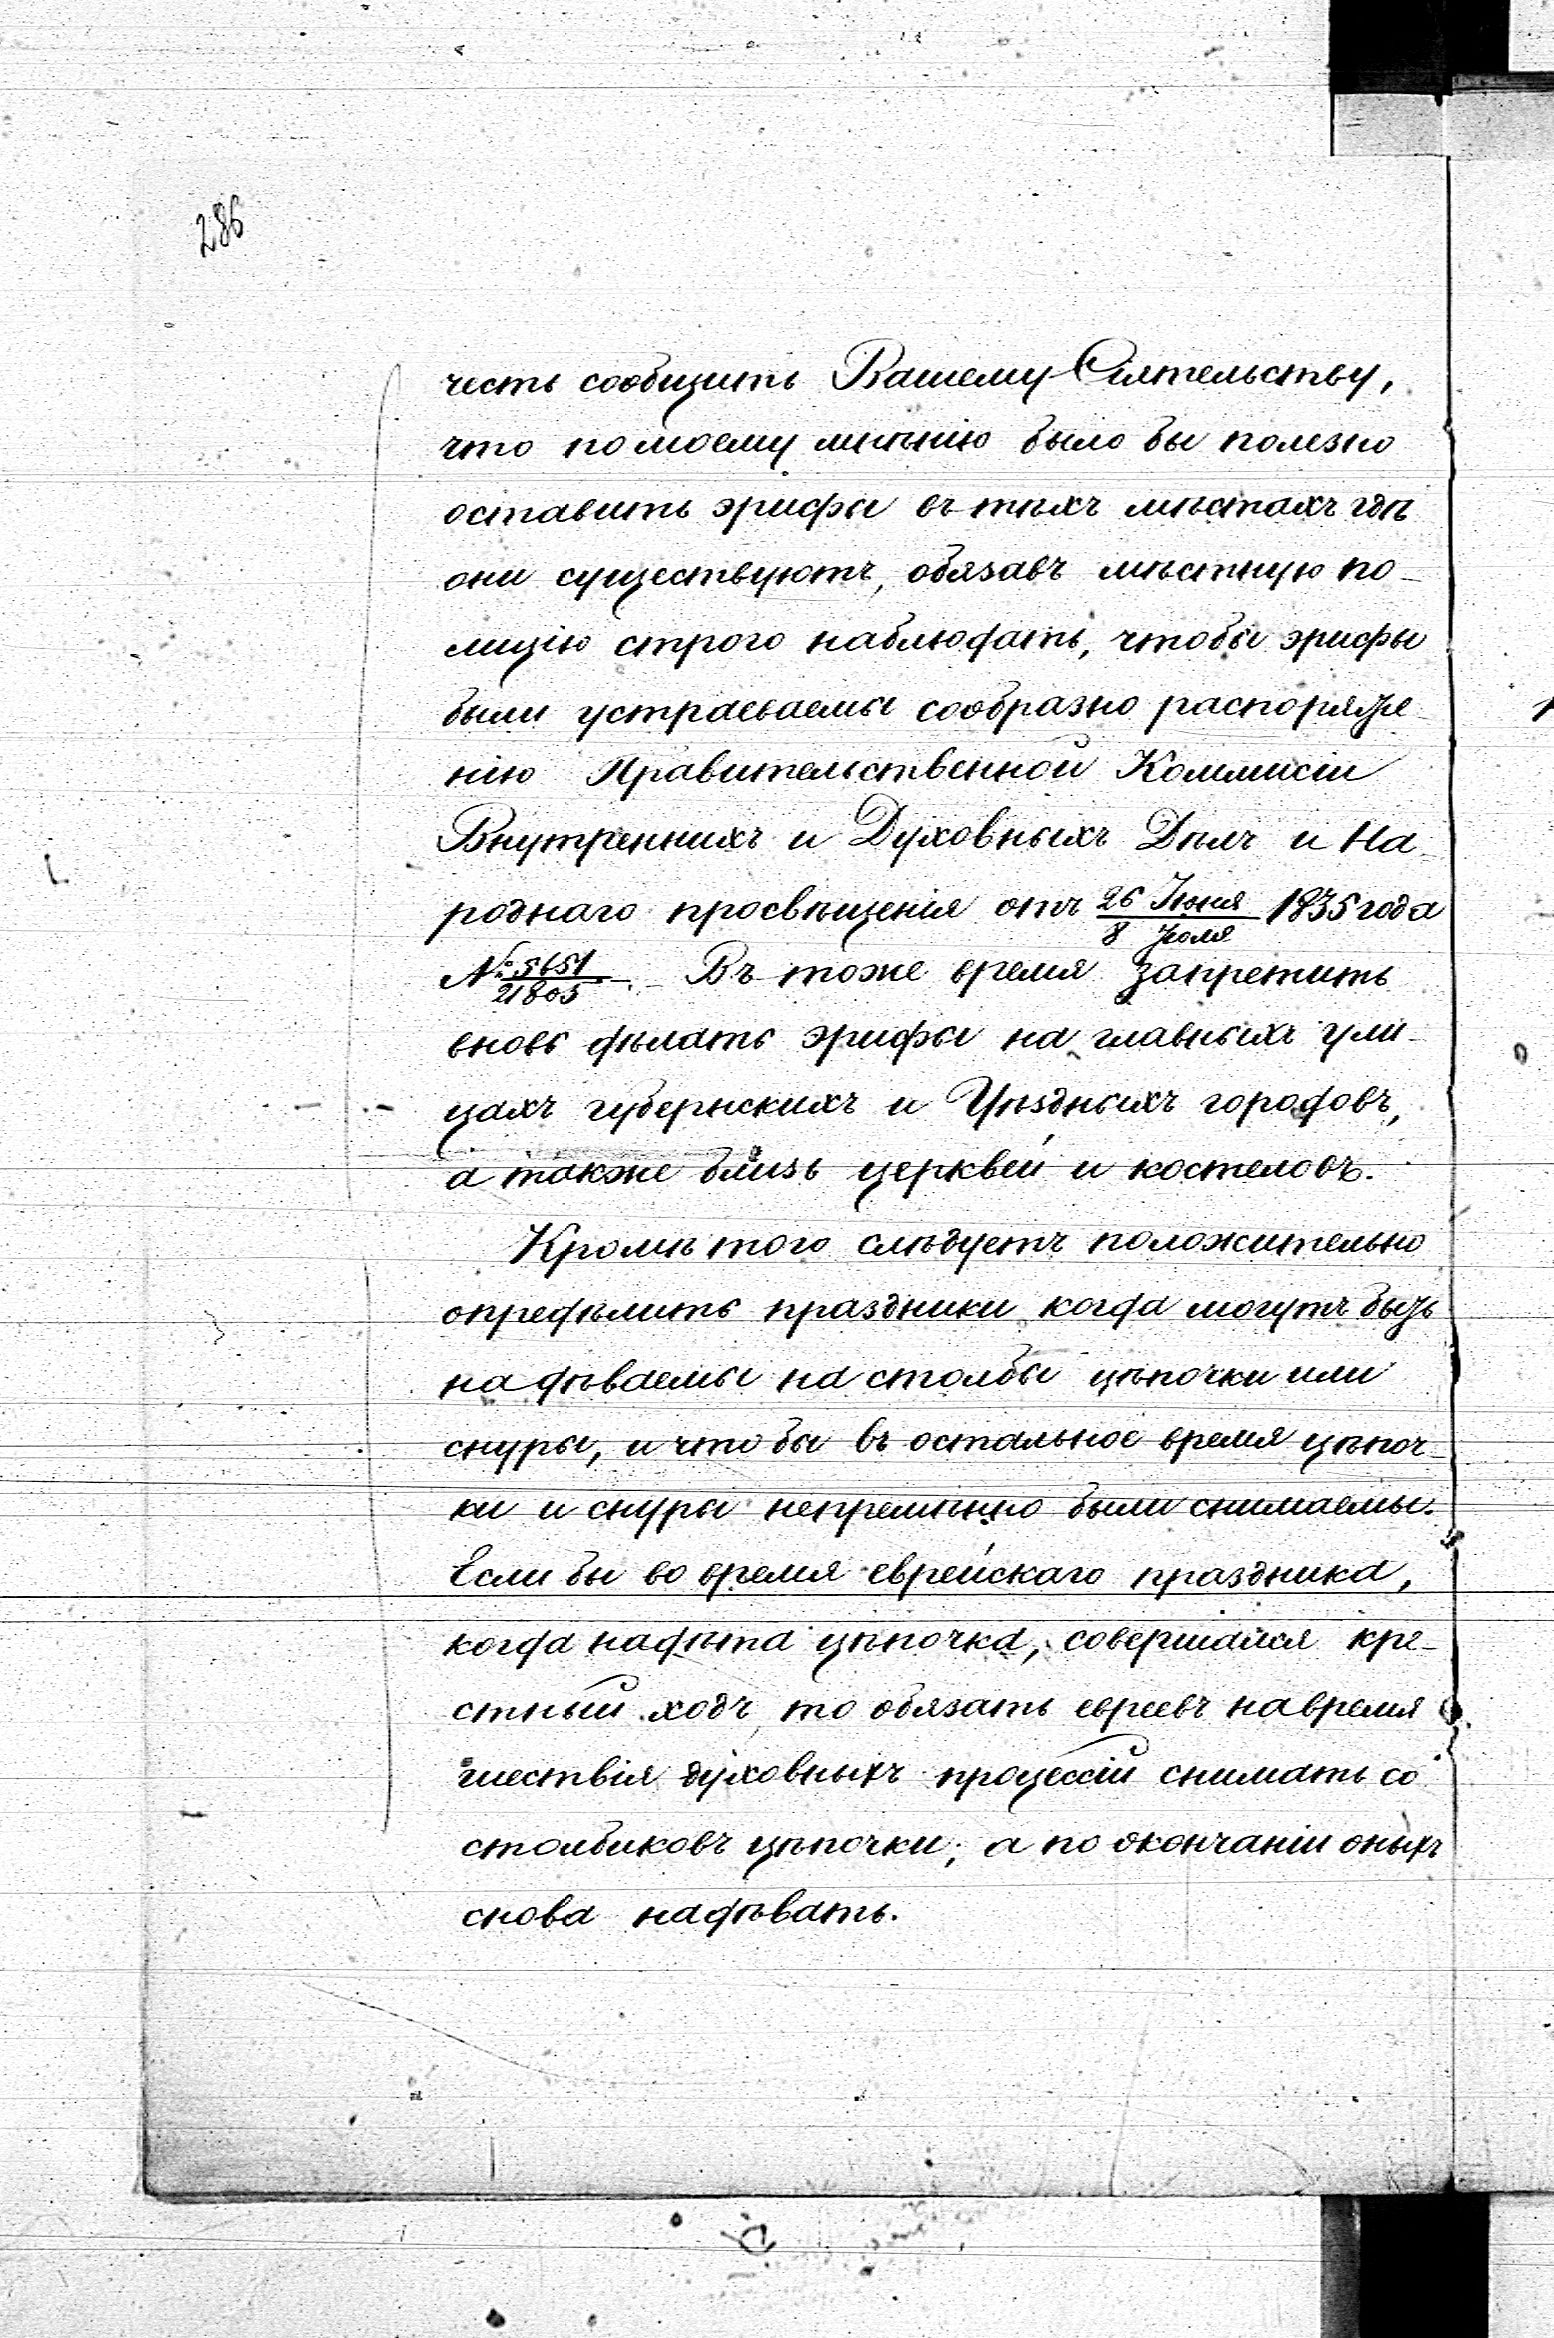 286
честь сообщить Вашему Сіятельству,
что по моему мнѣнію было бы полезно
оставить эрифы въ тѣхъ мѣстахъ гдѣ
они существуютъ, обязавъ мѣстную по-
лицію строго наблюдать, чтобы эрифы
были устраеваемы сообразно распоряже-
нію Правительственной Коммисіи
Внутреннихъ и Духовныхъ Дѣлъ и На-
роднаго просвѣщенія отъ 26 Іюня / 8 Іюля 1835 года
№ 5651/21805. Въ тоже время запретить
вновь дѣлать эрифы на главныхъ ули-
цахъ губернскихъ и Уѣздныхъ городовъ,
а также близь церквей и костеловъ.
Кромѣ того слѣдуетъ положительно
опредѣлить праздники когда могутъ быть
надѣваемы на столбы цѣпочки или
снуры, и что бы въ остальное время цѣпоч-
ки и снуры непремѣнно были снимаемы.
Если бы во время еврейскаго праздника,
когда надѣта цѣпочка, совершался кре-
стный ходъ, то обязать евреевъ на время
шествія духовныхъ процессій снимать со
столбиковъ цѣпочки; а по окончаніи оныхъ
снова надѣвать.